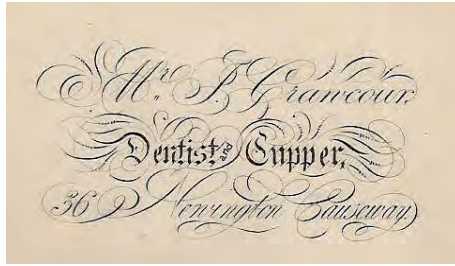 Mr. J. Grawcour,
Dentist and Cupper,
36 Newington Causeway,